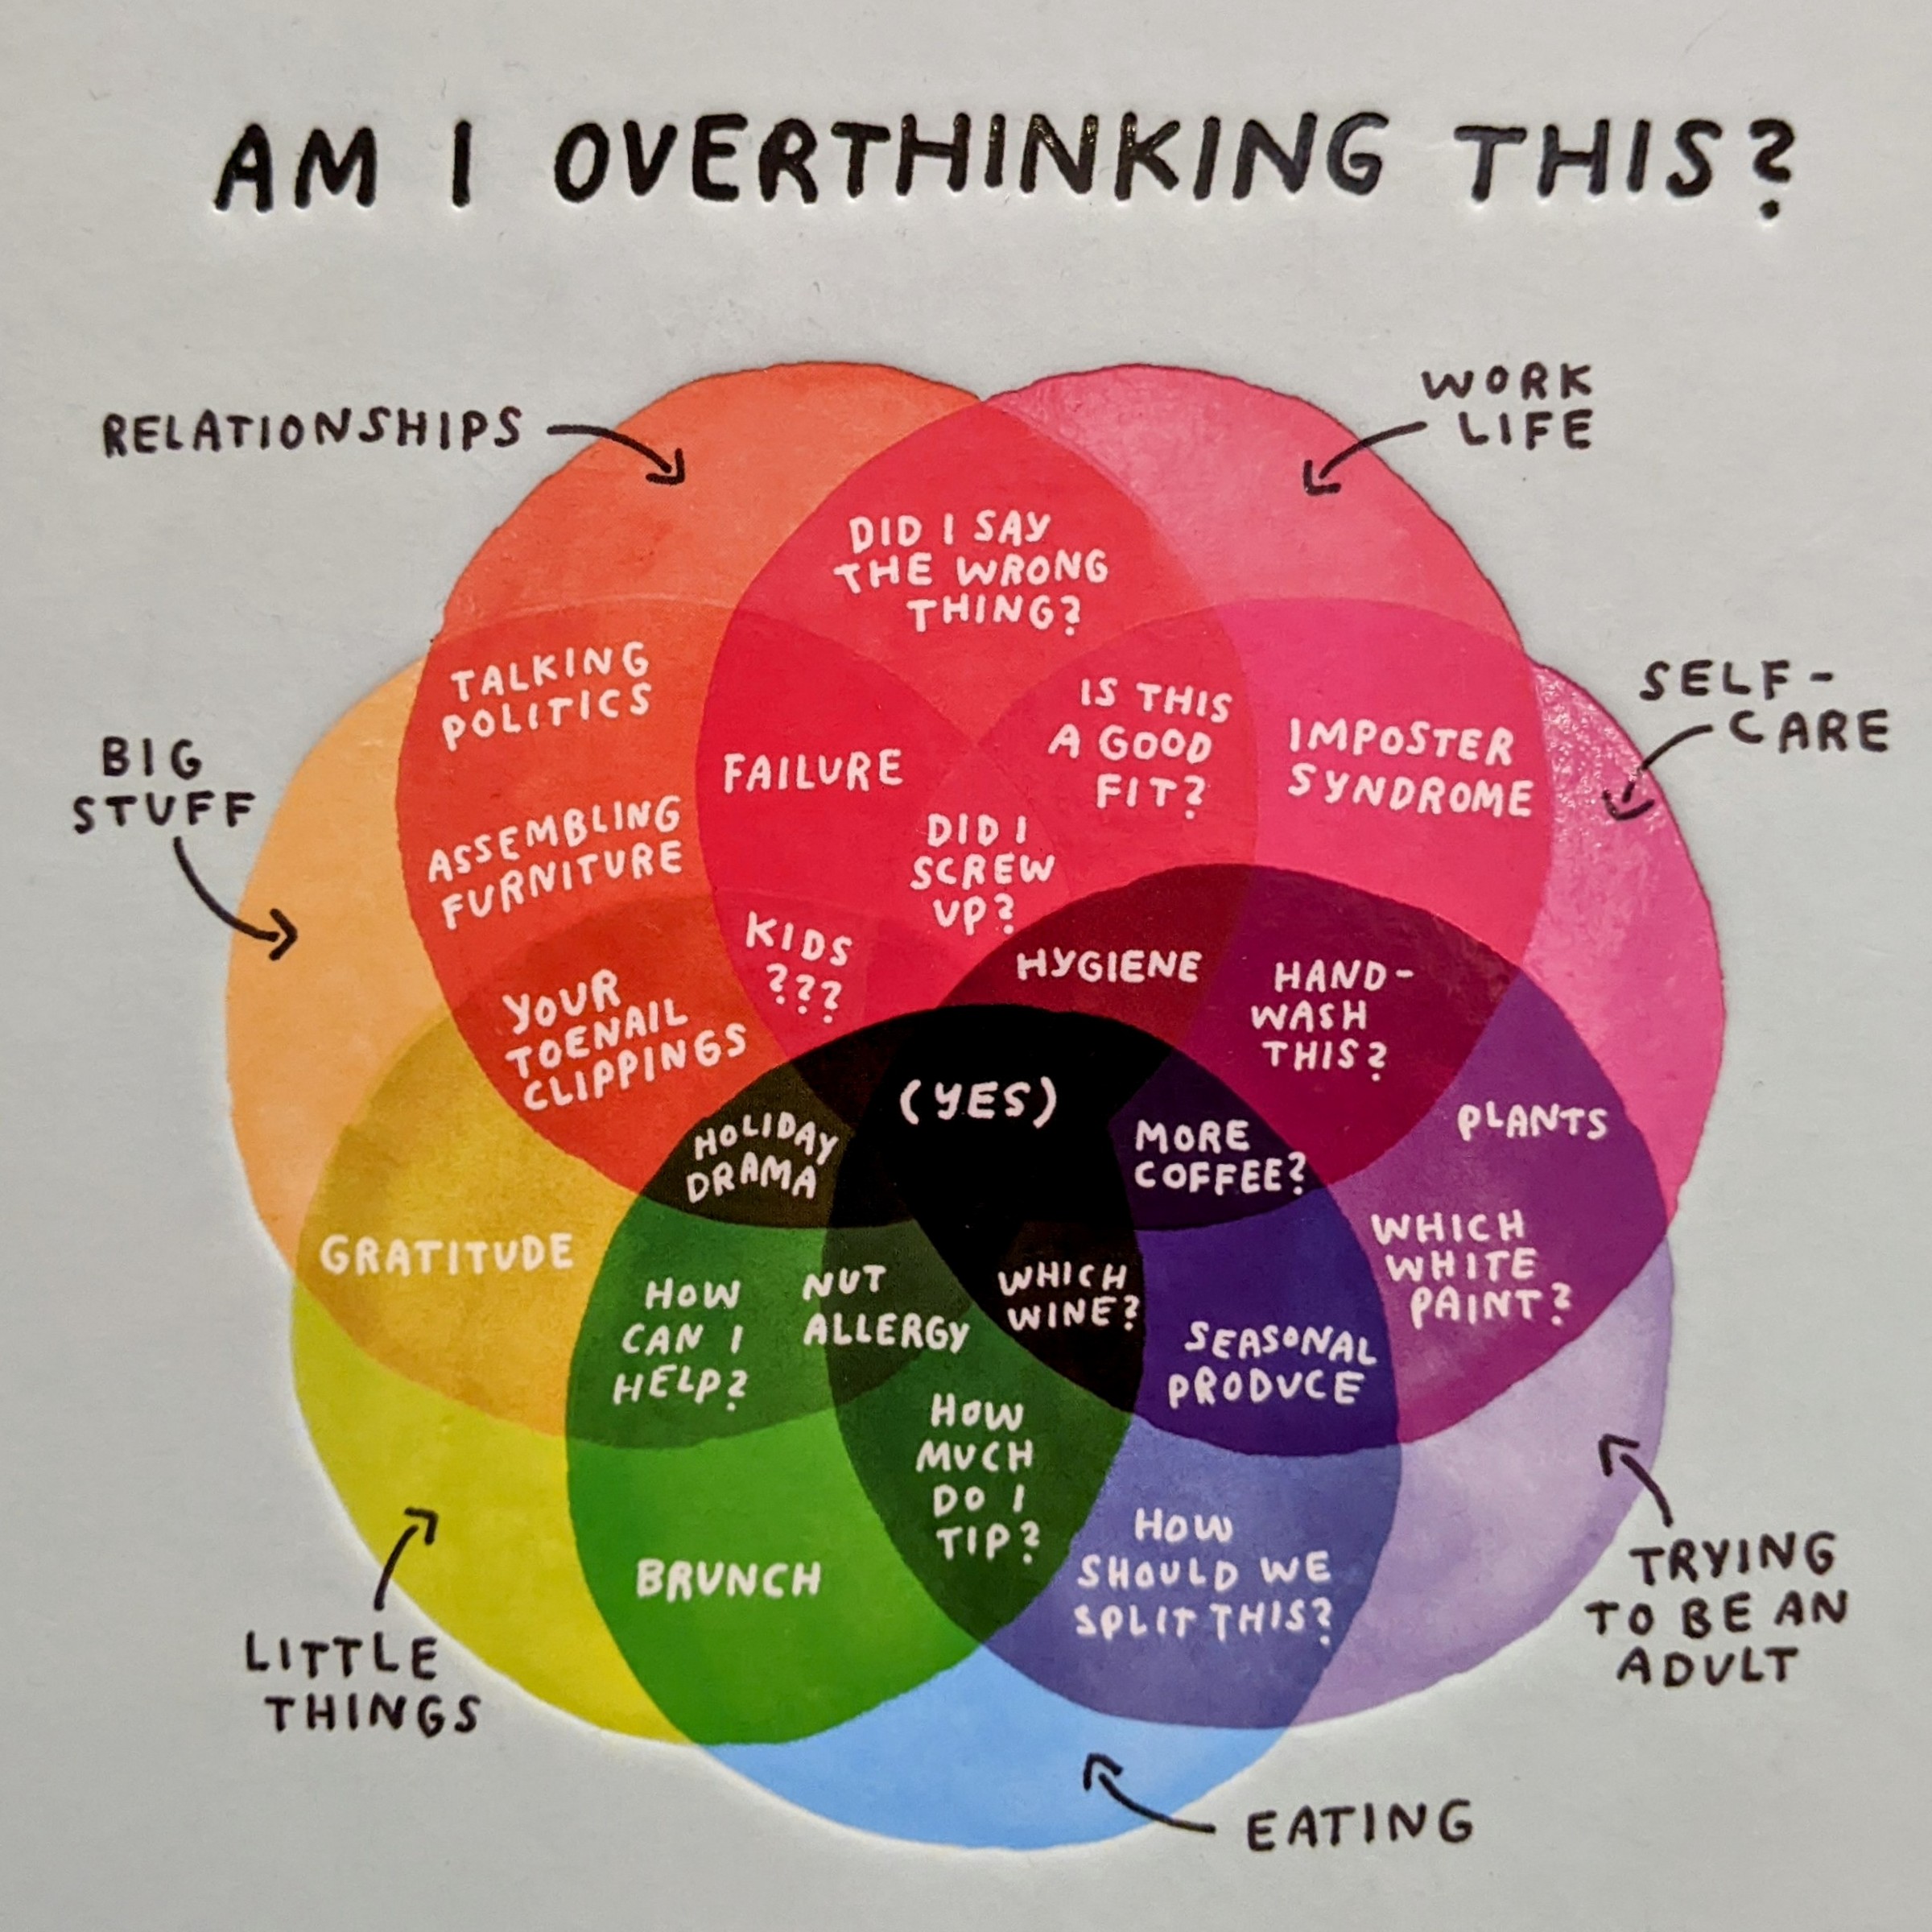 AM I OVERTHINKING THIS?
RELATIONSHIPS
WORK
LIFE
SELF-
CARE
BIG
STUFF
DID I SAY
THE WRONG
THING?
TALKING
POLITICS
FAILURE
IS THIS
A GOOD
FIT?
IMPOSTER
SYNDROME
ASSEMBLING
FURNITURE
DID I
SCREW
UP?
KIDS
???
HYGIENE
HAND-
WASH
THIS?
YOUR
TOENAIL
CLIPPINGS
(YES)
HOLIDAY
DRAMA
MORE
COFFEE?
PLANTS
GRATITUDE
HOW
CAN I
HELP?
NUT
ALLERGY
WHICH
WINE?
WHICH
WHITE
PAINT?
SEASONAL
PRODUCE
HOW
MUCH
DO I
TIP?
HOW
SHOULD WE
SPLIT THIS?
BRUNCH
LITTLE
THINGS
TRYING
TO BE AN
ADULT
EATING